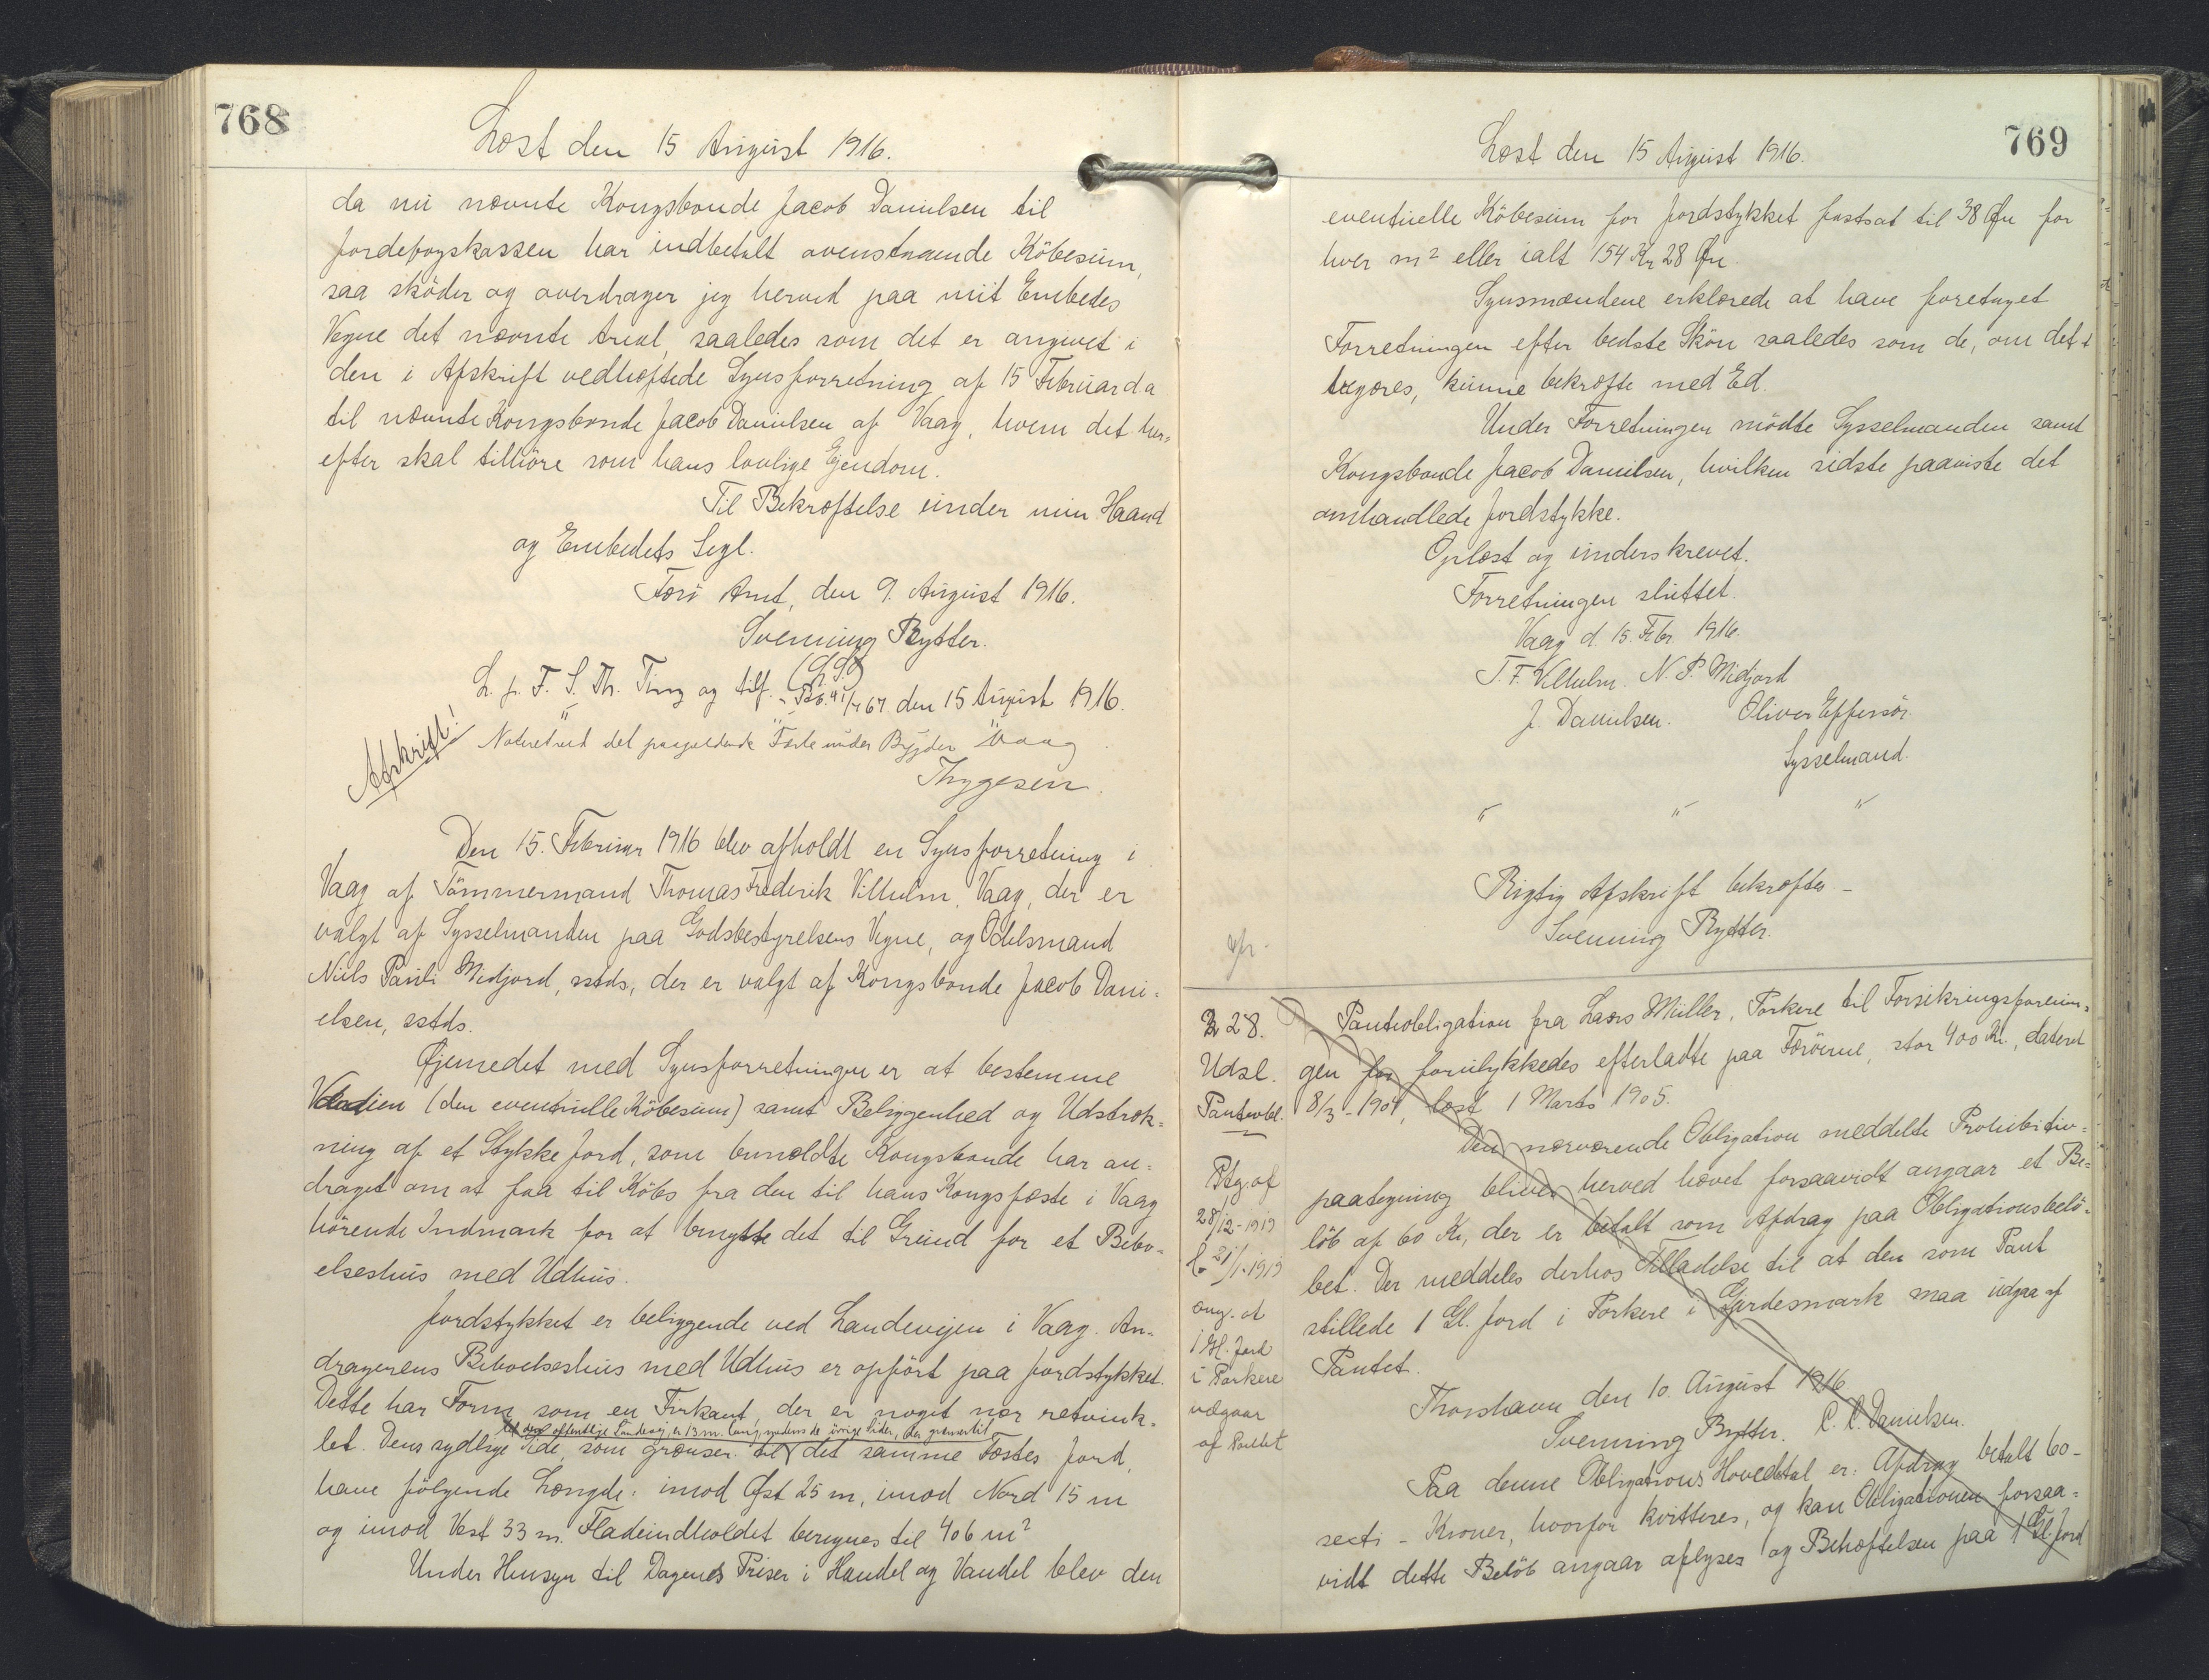 768
Læst den 15 August 1916.
da nu nævnte Kongsbonde Jacob Danielsen til
Jordefogskassen har indbetalt ovenstaaende Köbesum,
saa skøder og overdrager jeg herved paa mit Embedes
Vegne det nævnte Areal, saaledes som det er angivet i
den i Afskrift vedhæftede Synsforretning af 15 Februar d a
til nævnte Kongsbonde Jacob Danielsen af Vaag, hvem det her=
efter skal tilhöre som hans lovlige Ejendom.
Til Bekræftelse under min Haand
og Embedets Segl.
Færö Amt, den 9. August 1916.
Svenning Rytter.
(L.S.)
L. p. F. S. Th. Ting og tilf. - Pb. 41/767 den 15 August 1916.
Noteret ved det paagældende Fæste under Bygden Vaag.
Thygesen.
Afskrift!
Den 15. Februar 1916 blev afholdt en Synsforretning i
Vaag af Tömmermand Thomas Frederik Vilhelm, Vaag, der er
valgt af Sysselmanden paa Godsbestyrelsens Vegne, og Odelsmand
Niels Pauli Midjord, sstds, der er valgt af Kongsbonde Jacob Dani=
elsen, sstds.
Øjemedet med Synsforretningen er at bestemme
Værdien (den eventuelle Köbesum) samt Beliggenhed og Udstræk=
ning af et Stykke Jord, som bemeldte Kongsbonde har an=
draget om at faa til Köbs fra den til hans Kongsfæste i Vaag
hörende Indmark for at benytte det til Grund for et Bebo=
elseshus med Udhus.
Jordstykket er beliggende ved Landevejen i Vaag. An=
dragerens Beboelseshus med Udhus er opfört paa Jordstykket.
Dette har Form som en Firkant, der er noget nær retvink=
den offentlige Landevej, er 13 m. lang, medens de övrige Sider, der grænser til
let. Dens sydlige Side, som grænser til det samme Fæstes Jord,
have fölgende Længde: imod Øst 25 m, imod Nord 15 m
og imod Vest 33 m. Fladeindholdet beregnes til 406 m²
Under Hensyn til Dagens Priser i Handel og Vandel blev den
769
Læst den 15 August 1916.
eventuelle Köbesum for Jordstykket fastsat til 38 Øre for
hver m² eller ialt 154 Kr 28 Øre.
Synsmændene erklærede at have foretaget
Forretningen efter bedste Skön saaledes som de, om det
begæres, kunne bekræfte med Ed.
Under Forretningen mödte Sysselmanden samt
Kongsbonde Jacob Danielsen, hvilken sidste paaviste det
omhandlede Jordstykke.
Oplæst og underskrevet.
Forretningen sluttet.
Vaag d. 15. Febr. 1916.
T. F. Vilhelm. N. P. Midjord
J. Danielsen. Oliver Effersöe.
Sysselmand.
" " "
Rigtig Afskrift bekræftes -
Svenning Rytter.
28.
Udsl.
Panteobl.
Ptg. af
28/12-1919
l. 21/1-1919
ang. at
1 Gl. Jord
i Porkere
udgaar
af Pantet
Panteobligation fra Laars Müller, Porkere til Forsikringsforenin=
gen for forulykkedes efterladte paa Færöerne, stor 400 Kr., dateret
8/3-1904, læst 1 Marts 1905.
Den nærværende Obligation meddelte Prohibitiv=
paategning bliver herved hævet forsaavidt angaar et Be=
löb af 60 Kr, der er betalt som Afdrag paa Obligationsbelö=
bet. Der meddeles derhos Tilladelse til at den som Pant
stillede 1 Gl. Jord i Porkere i Gjerdesmark maa udgaa af
Pantet.
Thorshavn den 10. August 1916
Svenning Rytter. C. C. Danielsen.
Paa denne Obligations Hovedstol er: Afdrag betalt 60 -
secti - Kroner, hvorfor kvitteres, og kan Obligationen forsaa=
vidt dette Belöb angaar aflyses og Behæftelsen paa 1 Gl. Jord